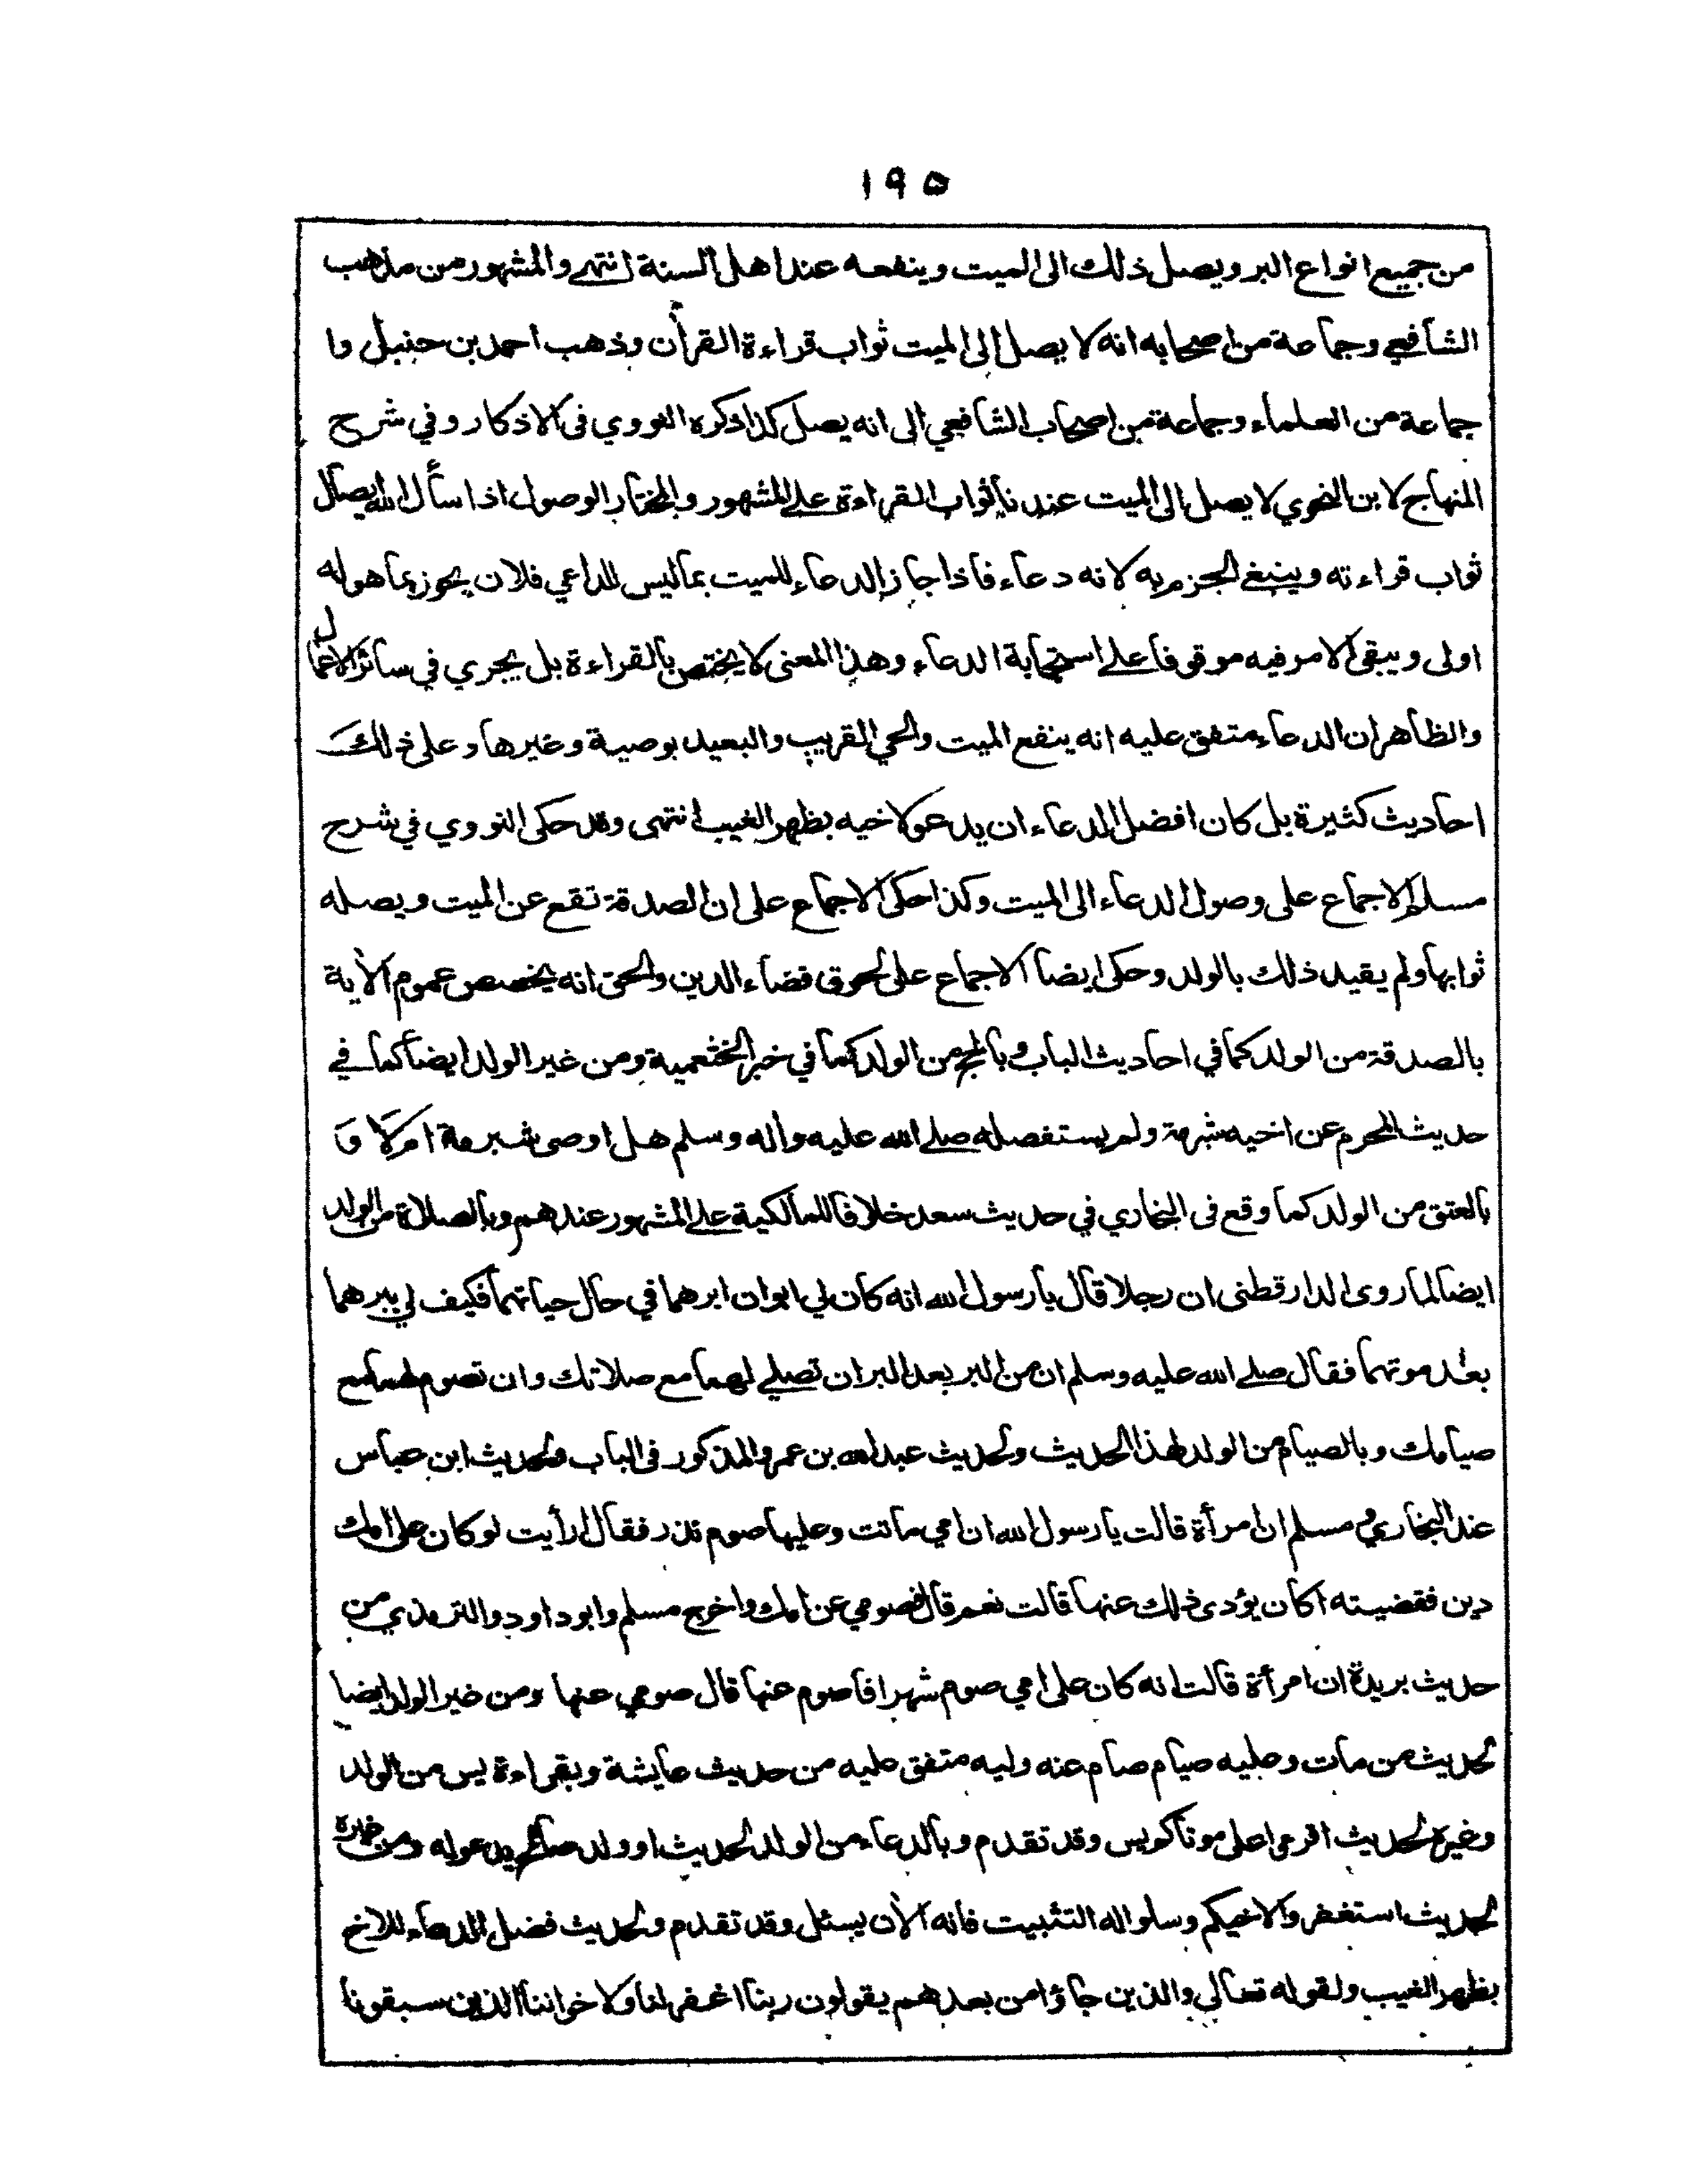 ١٩٥
من جميع انواع البر ويصل ذلك الى الميت وينفعه عند اهل السنة انتهى والمشهور من مذهب
الشافعي وجماعة من اصحابه انه لا يصل الى الميت ثواب قراءة القرآن وذهب احمد بن حنبل وا
جماعة من العلماء وجماعة من اصحاب الشافعي الى انه يصل كذا ذكره النووي فى الاذكار وفي شرح
المنهاج لابن النحوي لا يصل الى الميت عندنا ثواب القراءة على المشهور والمختار الوصول اذا سأل الله ايصال
ثواب قراءته وينبغي الجزم به لانه دعاء فاذا جاز الدعاء للميت بما ليس للداعي فلان يجوز بما هو له
اولى ويبقى الامر فيه موقوفا على استجابة الدعاء وهذا المعنى لا يختص بالقراءة بل يجري في سائر الاعمال
والظاهر ان الدعاء متفق عليه انه ينفع الميت والحي القريب والبعيد بوصية وغيرها وعلى ذلك
احاديث كثيرة بل كان افضل الدعاء ان يدعو لاخيه بظهر الغيب انتهى وقد حكى النووي في شرح
مسلم الاجماع على وصول الدعاء الى الميت وكذا حكى الاجماع على ان الصدقة تقع عن الميت ويصله
ثوابها ولم يقيد ذلك بالولد وحكى ايضا الاجماع على لحوق قضاء الدين والحق انه يخصص عموم الآية
بالصدقة من الولد كما في احاديث الباب وبالحج من الولد كما في خبر الخثعمية ومن غير الولد ايضا كما في
حديث المحرم عن اخيه شبرمة ولم يستفصله صلى الله عليه وآله وسلم هل اوصى شبرمة ام لا و
بالعتق من الولد كما وقع فى البخاري في حديث سعد خلافا للمالكية على المشهور عندهم وبالصلاة من الولد
ايضا لما روى الدارقطنى ان رجلا قال يا رسول الله انه كان لي ابوان ابرهما في حال حياتهما فكيف لي ببرهما
بعد موتهما فقال صلى الله عليه وسلم ان من البر بعد البر ان تصلي لهما مع صلاتك وان تصوم لهما مع
صيامك وبالصيام من الولد لهذا الحديث ولحديث عبد الله بن عمرو المذكور فى الباب ولحديث ابن عباس
عند البخاري ومسلم ان امرأة قالت يا رسول الله ان امي ماتت وعليها صوم نذر فقال ارأيت لو كان على امك
دين فقضيته اكان يؤدى ذلك عنها قالت نعم قال فصومي عن امك واخرج مسلم وابو داود والترمذي من
حديث بريدة ان امرأة قالت انه كان على امي صوم شهر افاصوم عنها قال صومي عنها ومن غير الولد ايضا
لحديث من مات وعليه صيام صام عنه وليه متفق عليه من حديث عايشة وبقراءة يس من الولد
وغيره لحديث اقرءوا على موتاكم يس وقد تقدم وبالدعاء من الولد لحديث او ولد صالح يدعو له ومن غيره
لحديث استغفروا لاخيكم وسلوا له التثبيت فانه الآن يسئل وقد تقدم ولحديث فضل الدعاء للاخ
بظهر الغيب ولقوله تعالى والذين جاؤا من بعدهم يقولون ربنا اغفر لنا ولاخواننا الذين سبقونا